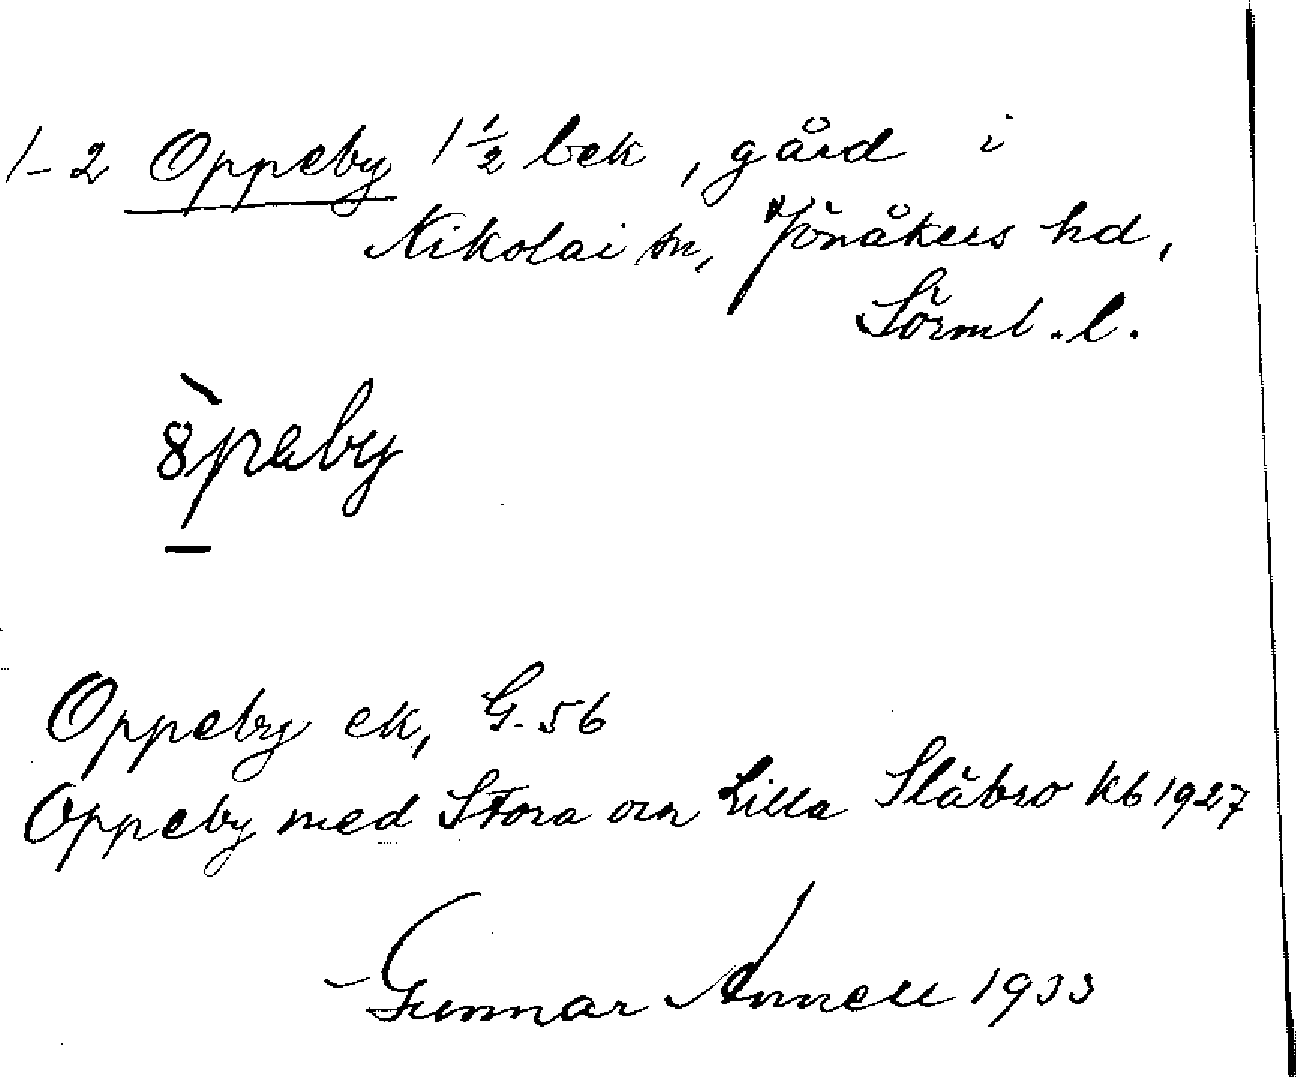 1-2 Oppeby 1 1/2 bek, gård i
Nikolai sn, Jönåkers hd,
Sörml. l.
8̀peby
Oppeby ek, G. 56
Oppeby med Stora och Lilla Slåbro kb 1927
Gunnar Annell 1933